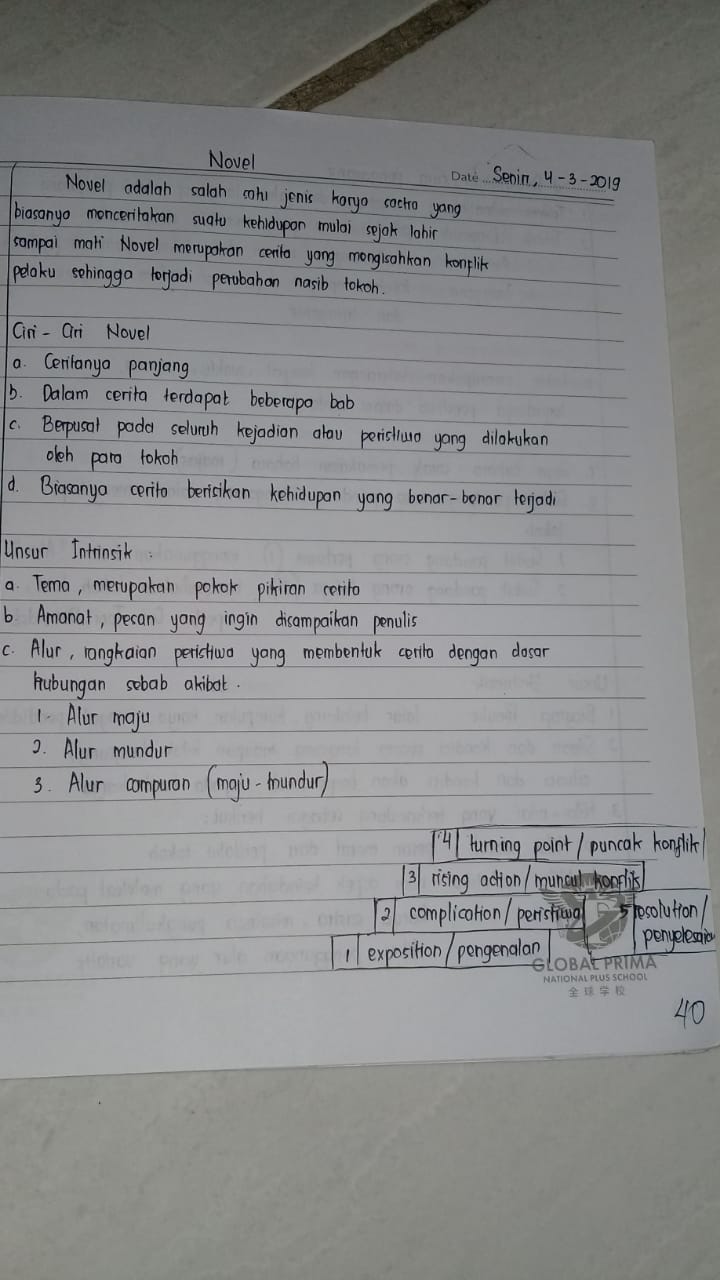 Novel
Date Senin, 4-3-2019
Novel adalah salah satu jenis karya sastra yang
biasanya menceritakan suatu kehidupan mulai sejak lahir
sampai mati Novel merupakan cerita yang mengisahkan konflik
pelaku sehingga terjadi perubahan nasib tokoh.
Ciri - Ciri Novel
a. Ceritanya panjang
b. Dalam cerita terdapat beberapa bab
c. Berpusat pada seluruh kejadian atau peristiwa yang dilakukan
oleh para tokoh
d. Biasanya cerita berisikan kehidupan yang benar-benar terjadi
Unsur Intrinsik :
a. Tema, merupakan pokok pikiran cerita
b Amanat, pesan yang ingin disampaikan penulis
c. Alur, rangkaian peristiwa yang membentuk cerita dengan dasar
hubungan sebab akibat.
1. Alur maju
2. Alur mundur
3. Alur campuran (maju - mundur)
4 turning point / puncak konflik
3 rising action / muncul konflik
2 complication / peristiwa 5 resolution /
penyelesaian
1 exposition / pengenalan
GLOBAL PRIMA
NATIONAL PLUS SCHOOL
全球学校
40